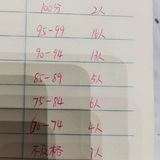 100分 2人
95-99 16人
90-94 13人
85-89 5人
75-84 6人
60-74 4人
不及格 7人